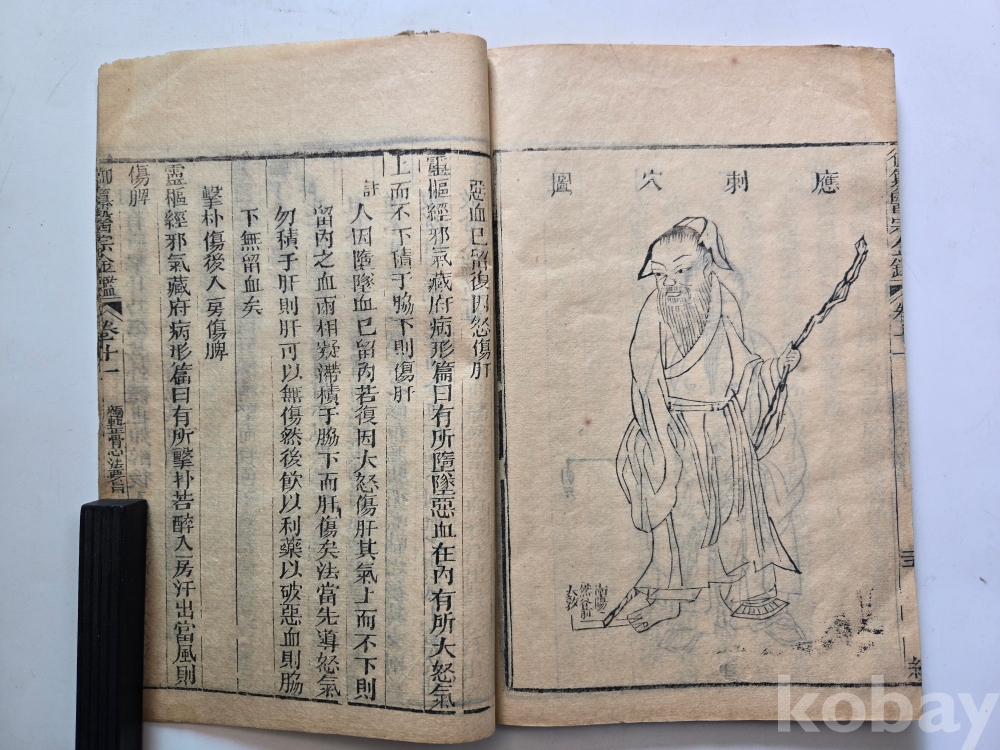 應刺穴圖
然谷前
大敦
惡血已留復因怒傷肝
靈樞經邪氣藏府病形篇曰有所墮墜惡血在內有所大怒氣
上而不下積于脇下則傷肝
註 人因墮血已留內若復因大怒傷肝其氣上而不下則
留內之血兩相凝滯積于脇下而肝傷矣法當先導怒氣
勿積于肝則肝可以無傷然後飲以利藥以破惡血則脇
下無留血矣
擊朴傷後入房傷脾
靈樞經邪氣藏府病形篇曰有所擊朴若醉入房汗出當風則
傷脾
御纂醫宗金鑑 卷廿一 編輯正骨心法要旨
kobay